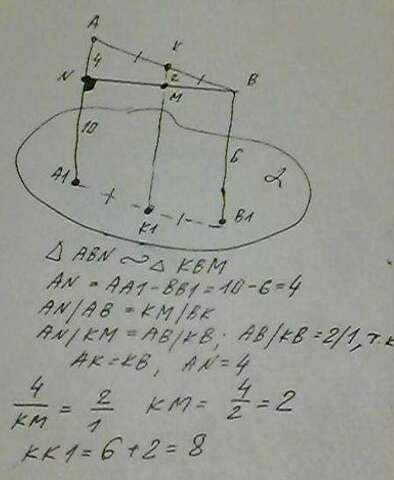 A
K
4
N
2
B
M
10
6
A1
α
K1
B1
△ ABN ∾ △ KBM
AN = AA1 - BB1 = 10 - 6 = 4
AN/AB = KM/BK
AN/KM = AB/KB; AB/KB = 2/1, т.к
AK = KB, AN = 4
4/KM = 2/1 KM = 4/2 = 2
KK1 = 6 + 2 = 8